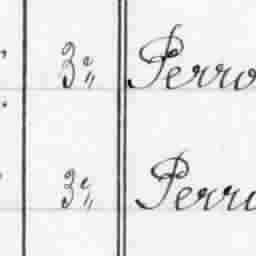 3 e,, Perro
3 e,, Perro